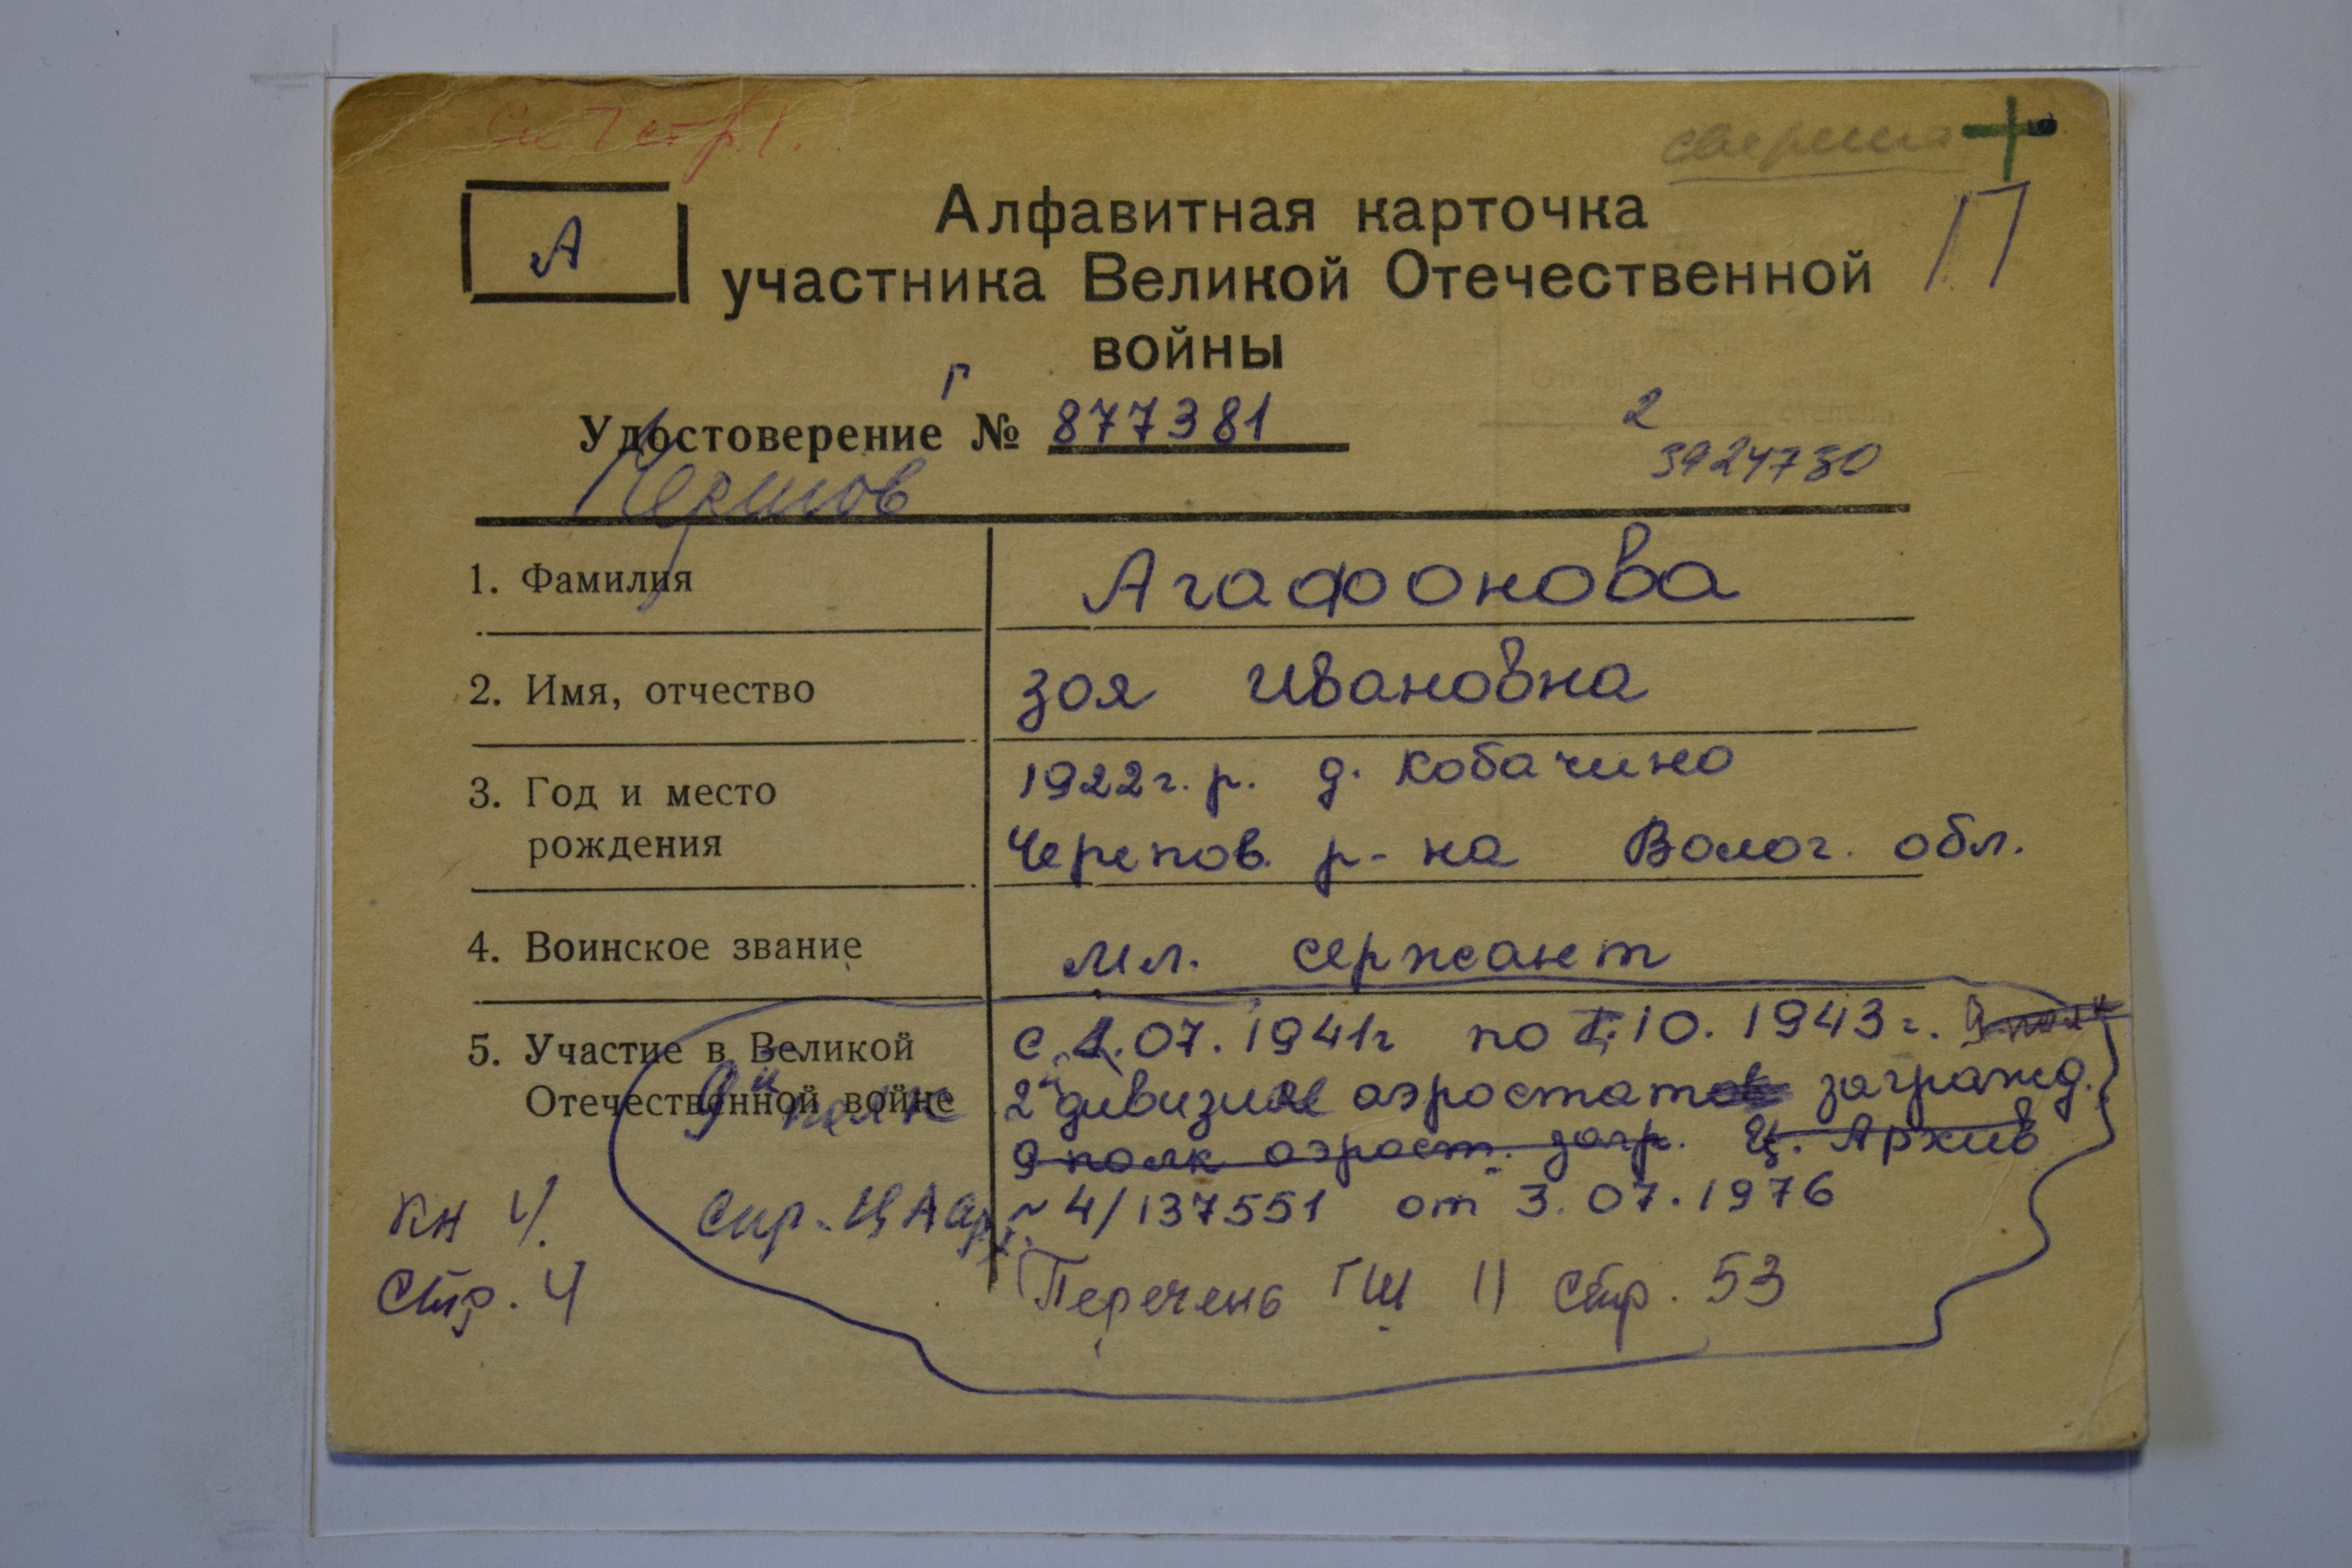 А
Алфавитная карточка
участника Великой Отечественной
войны
П
Удостоверение Г № 877381
2
3924780
1. Фамилия Агафонова
2. Имя, отчество Зоя Ивановна
3. Год и место рождения 1922г.р. д. Кобачино
Черепов. р-на Волог. обл.
4. Воинское звание мл. сержант
5. Участие в Великой Отечественной войне с 1.07.1941г по 1.10.1943г. 9 полк
9й полк 2й дивизии аэростатов загражд.
9 полк аэрост. загр. Ц. Архив
Спр. ЦА арх. ~ 4/137551 от 3.07.1976
Перечень ГШ II стр. 53
Кн 4.
Стр. 4